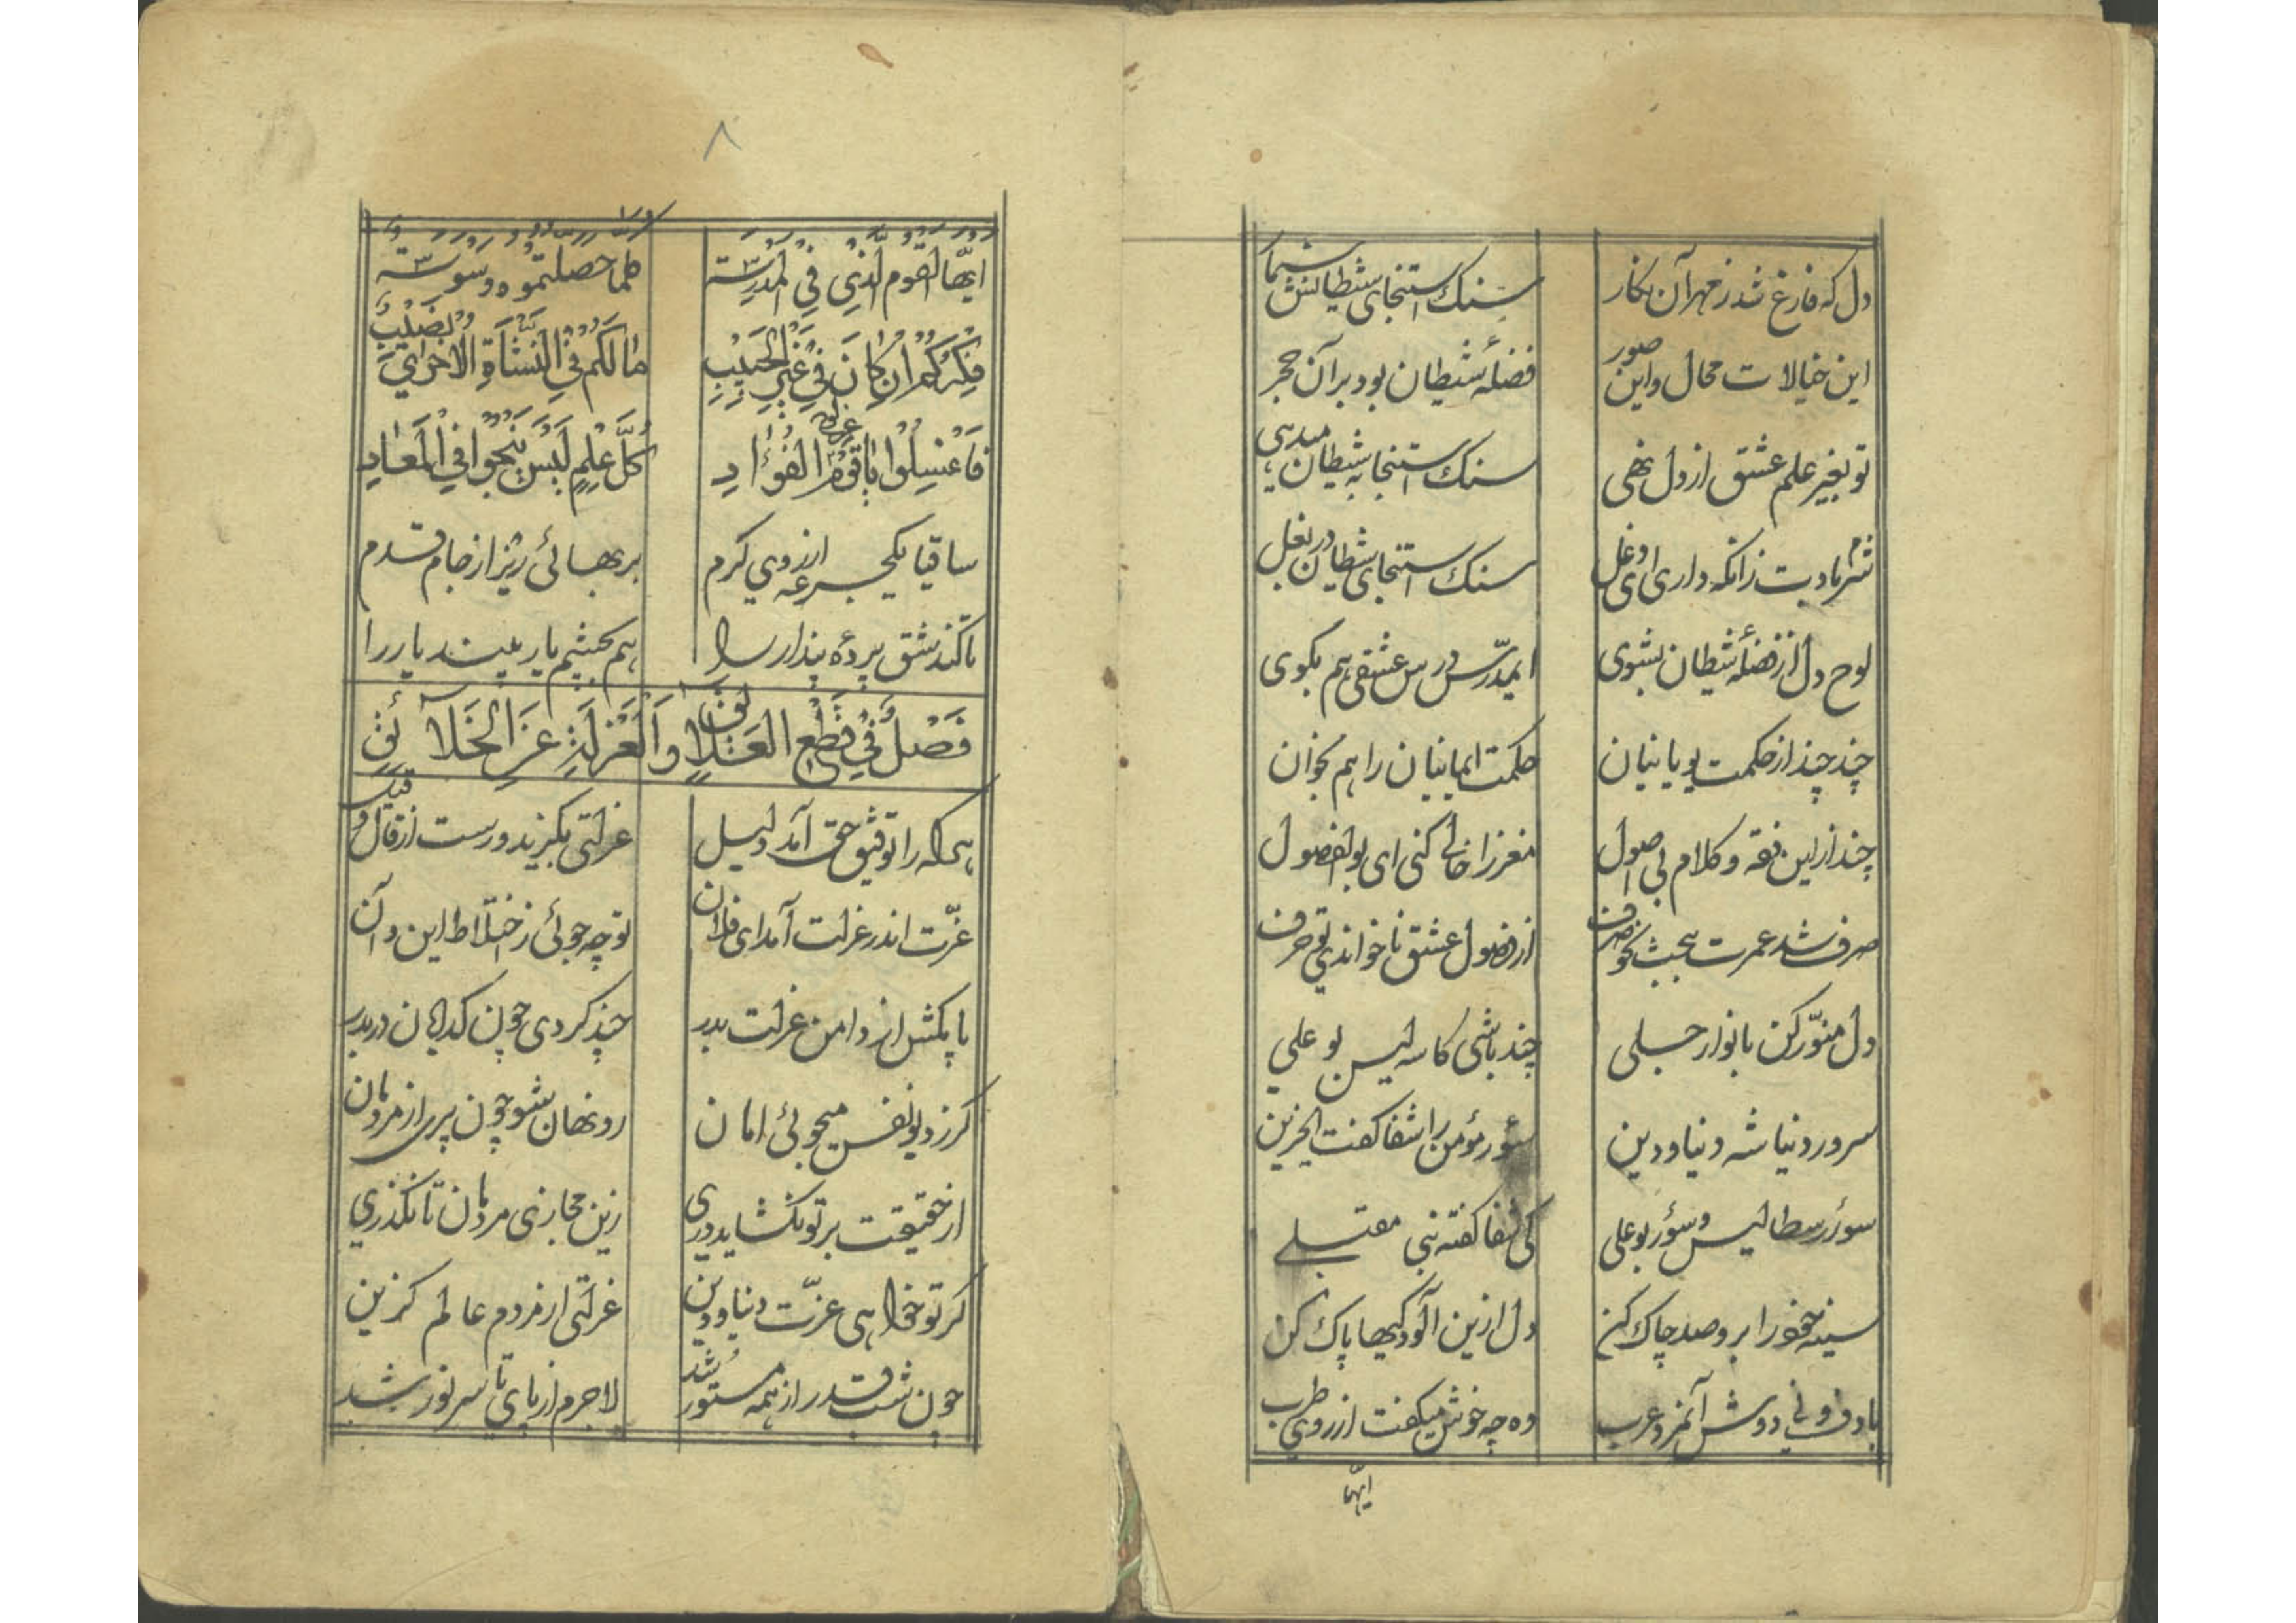 دل که فارغ شد ز مهر آن نکار سنک استنجای شیطانش شمار
این خیالات محال و این صور فضلهٔ شیطان بود بر آن حجر
تو بغیر علم عشق ار دل نهی سنک استنجا به شیطان میدهی
شرم بادت زانکه داری ای دغل سنک استنجای شیطان در بغل
لوح دل از فضلهٔ شیطان بشوی ایمدرّس درس عشقی هم بکوی
چند چند از حکمت یونانیان حکمت ایمانیان را هم بخوان
چند از این فقه و کلام بی اصول مغز را خالی کنی ای بوالفضول
صرف شد عمرت ببحث نحو و صرف از اصول عشق ناخواندی تو حرف
دل منوّر کن بانوار جلی چند باشی کاسه لیس بو علی
سرور دنیا شه دنیا و دین سؤر مؤمن را شفا کفت ای حزین
سؤر رسطالیس و سؤر بو علی کی شفا کفته نبی
سینه خود را برو صد چاک کن دل ازین آلودکیها پاک کن
با دف و نی دوش آنمرد عرب وه چه خوش میکفت از روی طرب
ایّها
۸
ایّها القوم الّذی فی المدرسة کلما حصلتموه وسوسة
فکرکم ان کان فی غیر الحبیب مالکم فی النشأة الاخری نصیب
فاغسلوا یا قوم عن لوح الفؤاد کلّ علم لیس ینجوا فی المعاد
ساقیا یکجرعه از روی کرم بر بهائی ریز از جام قدم
تا کند شق پردهٔ پندار را هم بچشم یار بیند یار را
فصل فی قطع العلائق و العزلة عن الخلائق
هرکه را توفیق حق آمد دلیل عزلتی بکزید و رست از قال و قیل
عزّت اندر عزلت آمد ای فلان تو چه جوئی ز اختلاط این و آن
پا مکش از دامن عزلت بدر چند کردی چون کدایان دربدر
کر ز دیو نفس میجوئی امان رو نهان شو چون پری از مردمان
از حقیقت بر تو نکشاید دری زین مجازی مردمان تا نکذری
کر تو خواهی عزّت دنیا و دین عزلتی از مردم عالم کزین
چون شب قدر از همه مستور شد لاجرم از پای تا سر نور شد